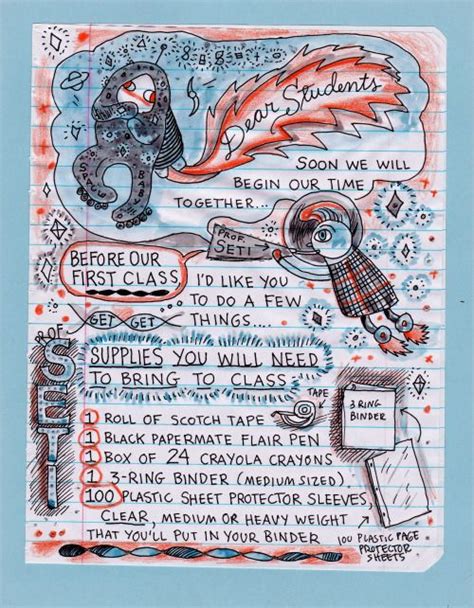 Dear Students
SOON WE WILL
BEGIN OUR TIME
TOGETHER...
PROF.
SETI
BEFORE OUR
FIRST CLASS,
I'D LIKE YOU
TO DO A FEW
THINGS....
GET GET
PROF.
SETI
SUPPLIES YOU WILL NEED
TO BRING TO CLASS
TAPE
3 RING
BINDER
1 ROLL OF SCOTCH TAPE
1 BLACK PAPERMATE FLAIR PEN
1 BOX OF 24 CRAYOLA CRAYONS
1 3-RING BINDER (MEDIUM SIZED).
100 PLASTIC SHEET PROTECTOR SLEEVES,
CLEAR, MEDIUM OR HEAVY WEIGHT
THAT YOU'LL PUT IN YOUR BINDER
100 PLASTIC PAGE
PROTECTOR
SHEETS